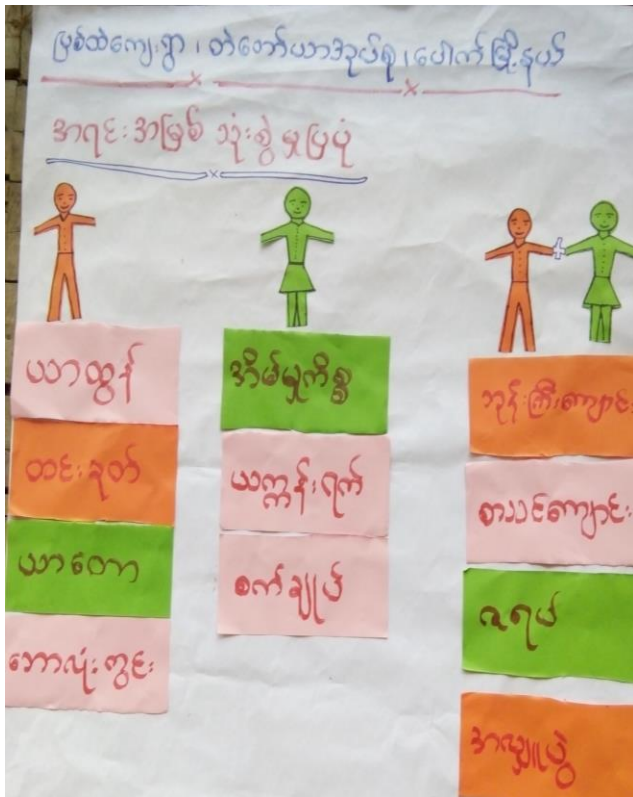 မြစ်ထဲကျေးရွာ၊ တဲတော်ယာအုပ်စု၊ ပေါက်မြို့နယ်
အရင်းအမြစ် သုံးစွဲမှုပြပုံ
ယာထွန်
ထင်းခုတ်
ယာတော
ဘောလုံးကွင်း
အိမ်မှုကိစ္စ
ယက္ကန်းရက်
စက်ချုပ်
ဘုန်းကြီးကျောင်း
စာသင်ကျောင်း
ဇရပ်
အလှူပွဲ